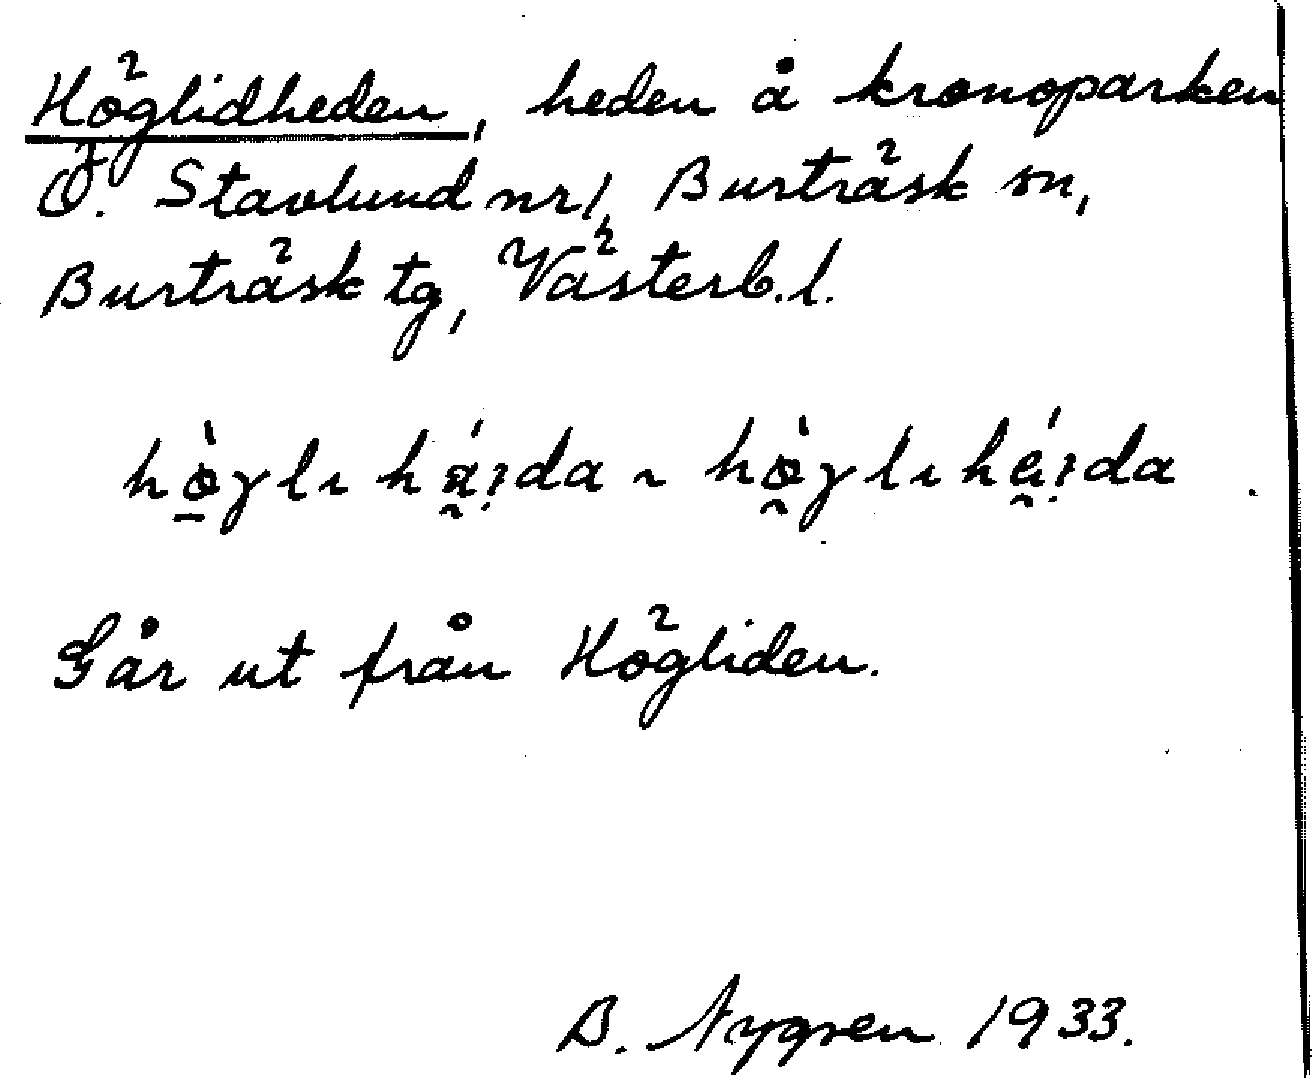 Höglidheden, heden å kronoparken
Ö. Stavlund nr 1, Burträsk sn,
Burträsk tg, Västerb. l.
hö̀γlı hä́i̯da ~ hö̀γlı hé̮i̯da.
Går ut från Högliden.
B. Nygren 1933.